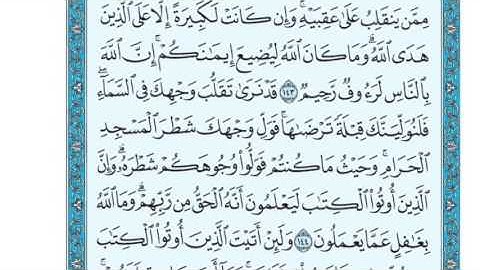 مِمَّن يَنقَلِبُ عَلَىٰ عَقِبَيْهِ ۚ وَإِن كَانَتْ لَكَبِيرَةً إِلَّا عَلَى ٱلَّذِينَ
هَدَى ٱللَّهُ ۗ وَمَا كَانَ ٱللَّهُ لِيُضِيعَ إِيمَـٰنَكُمْ ۚ إِنَّ ٱللَّهَ
بِٱلنَّاسِ لَرَءُوفٌ رَّحِيمٌ ١٤٣ قَدْ نَرَىٰ تَقَلُّبَ وَجْهِكَ فِى ٱلسَّمَآءِ ۖ
فَلَنُوَلِّيَنَّكَ قِبْلَةً تَرْضَىٰهَا ۚ فَوَلِّ وَجْهَكَ شَطْرَ ٱلْمَسْجِدِ
ٱلْحَرَامِ ۚ وَحَيْثُ مَا كُنتُمْ فَوَلُّوا۟ وُجُوهَكُمْ شَطْرَهُۥ ۗ وَإِنَّ
ٱلَّذِينَ أُوتُوا۟ ٱلْكِتَـٰبَ لَيَعْلَمُونَ أَنَّهُ ٱلْحَقُّ مِن رَّبِّهِمْ ۗ وَمَا ٱللَّهُ
بِغَـٰفِلٍ عَمَّا يَعْمَلُونَ ١٤٤ وَلَئِنْ أَتَيْتَ ٱلَّذِينَ أُوتُوا۟ ٱلْكِتَـٰبَ